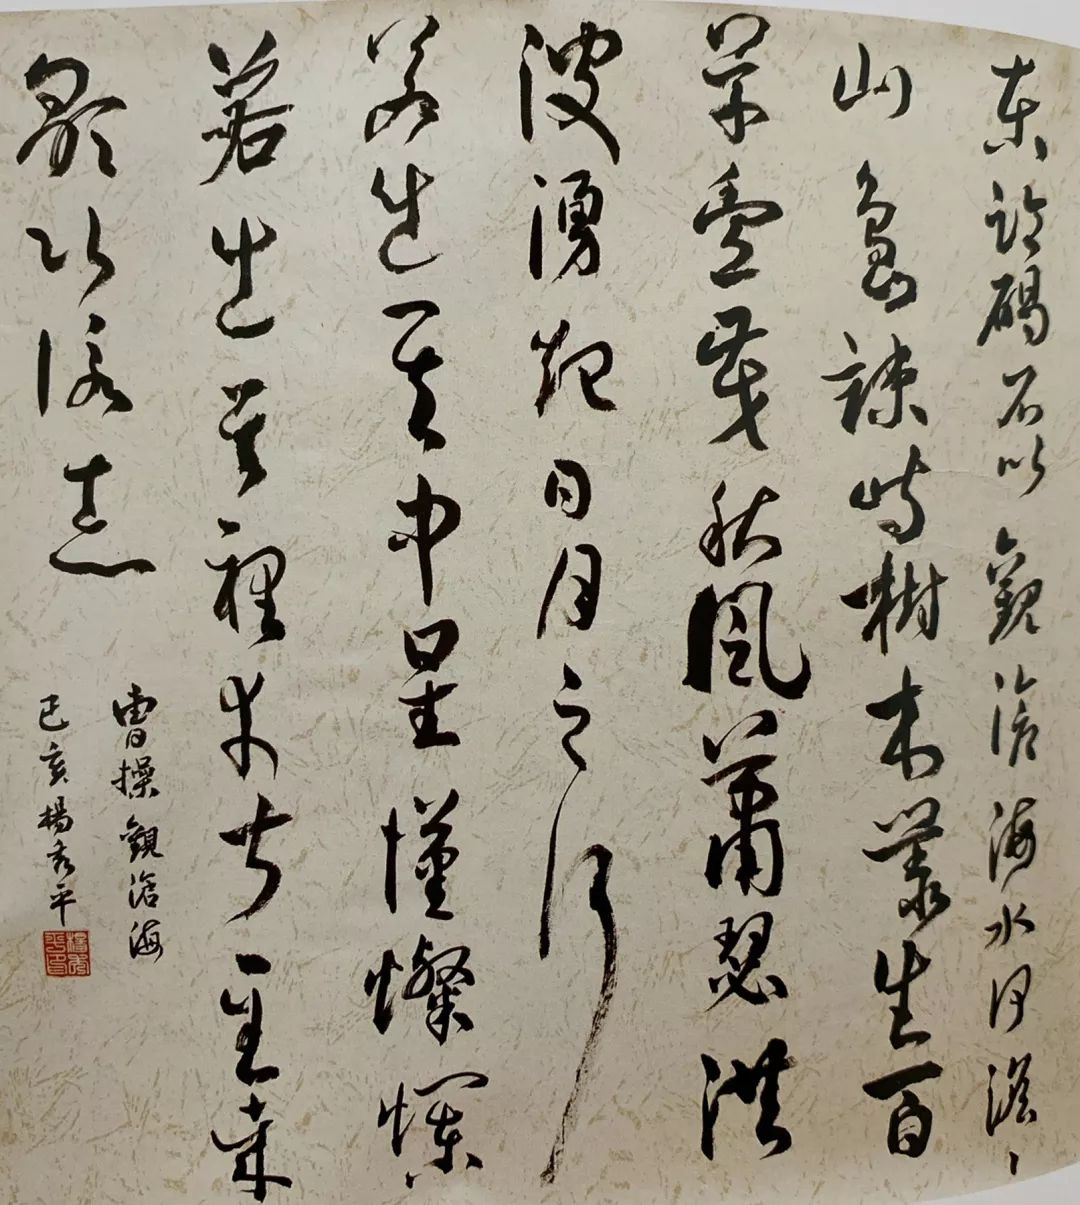 東臨碣石以觀滄海水何澹〻
山島竦峙樹木叢生百
草豐茂秋風蕭瑟洪
波湧起日月之行
若出其中星漢燦爛
若出其裡幸甚至哉
歌以詠志
曹操觀滄海
己亥楊秀平
楊秀平印